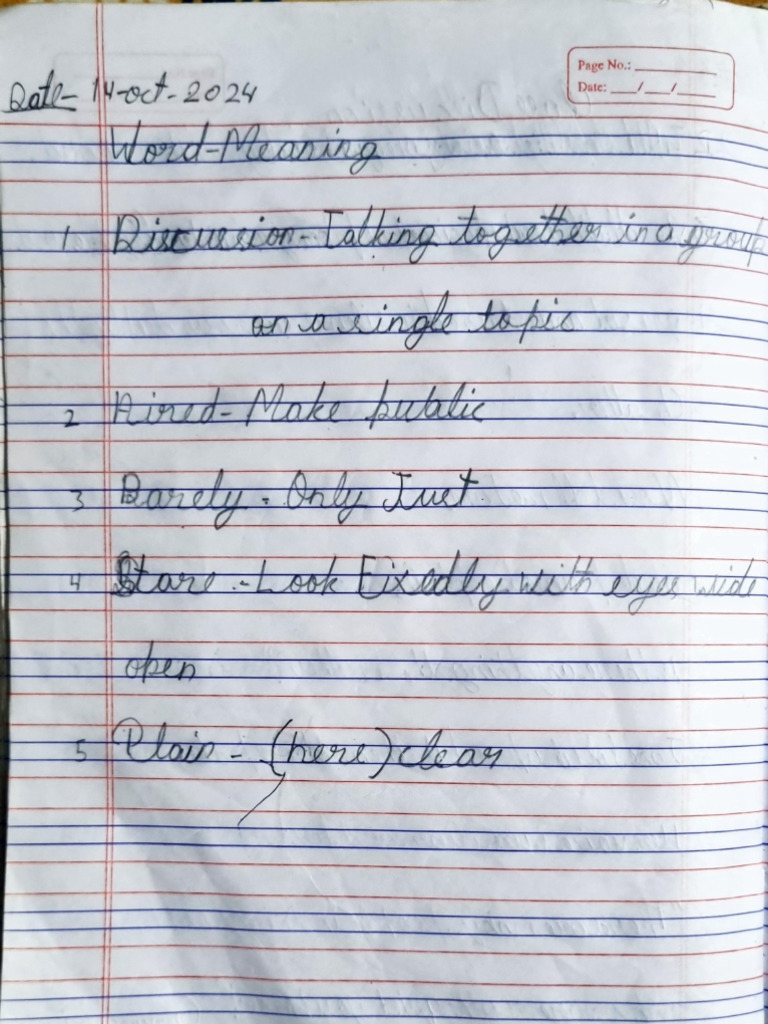 Page No.: ________
Date: ___/___/____
Date- 14-oct-2024
Word-Meaning
1 Discussion-Talking together in a group
on a single topic
2 Aired-Make public
3 Barely - Only Just
4 Stare - Look Fixedly with eyes wide
open
5 Plain - (here) clear